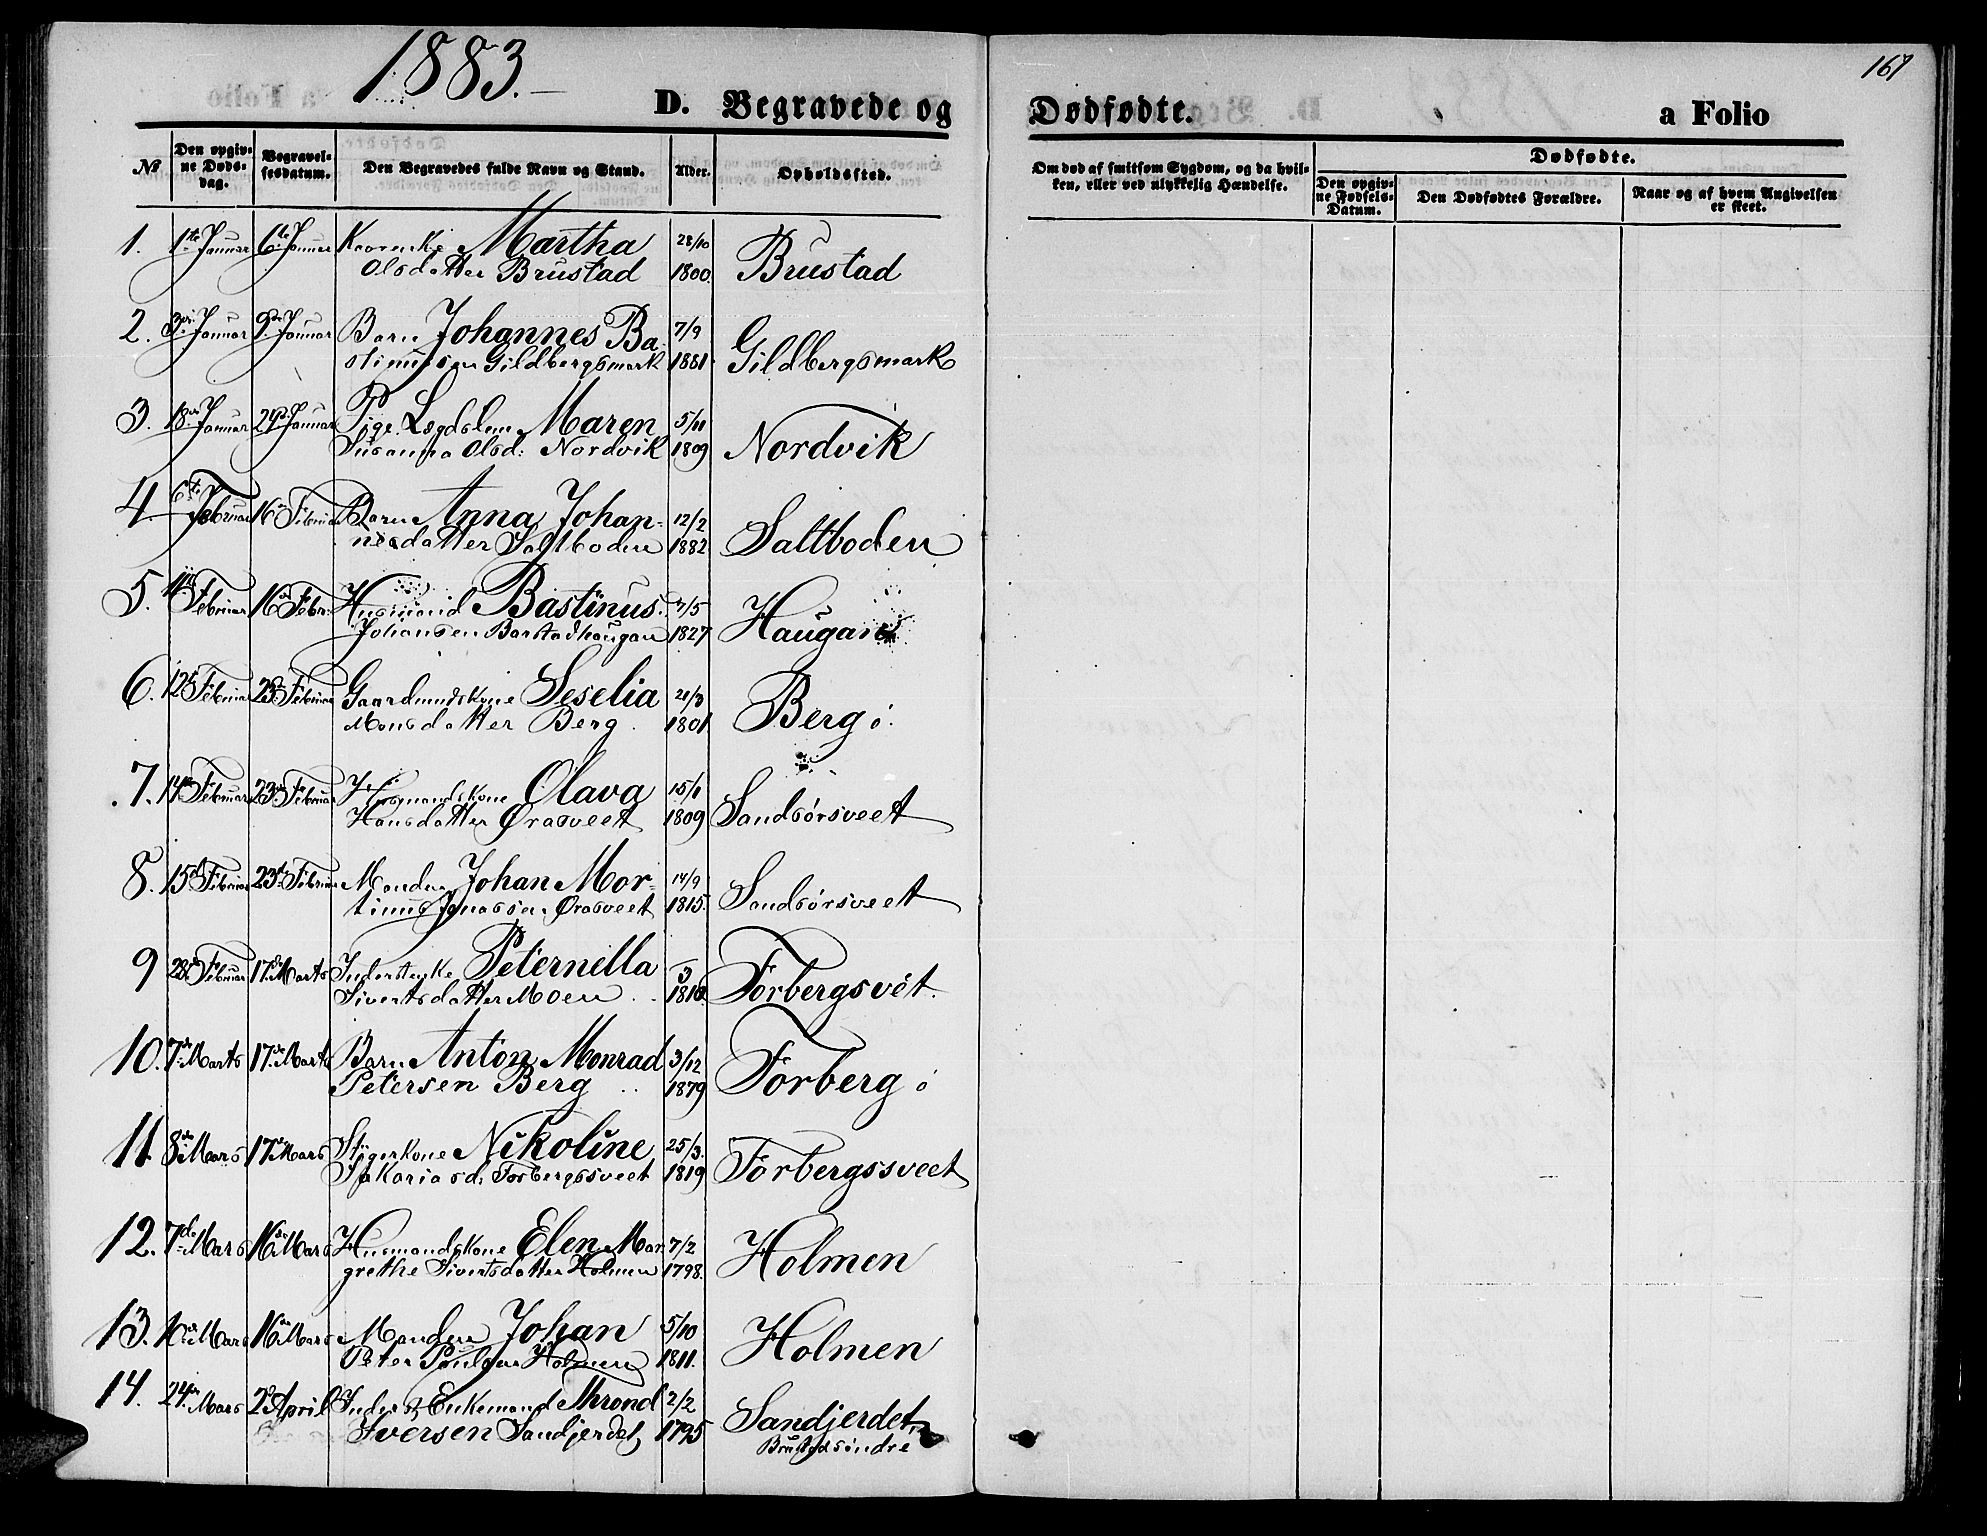 1883.
167
D. Begravede og Dødfødte. a Folio
№
Den opgivne Døds-dag.
Begravelsesdatum.
Den Begravedes fulde Navn og Stand.
Alder.
Opholdssted.
Om død af smitsom Sygdom, og da hvilken, eller ved ulykkelig Hændelse.
Dødfødte.
Den opgivne Fødsels-Datum.
Den Dødfødtes Forældre.
Naar og af hvem Angivelsen er skeet.
1. 1ste Januar 6te Januar Martha 28/10
Olsdatter Brustad 1800. Brustad
2. 3die Januar 9de Januar Barn Johannes Ba- 7/9
stinussen Gildbergsmark 1881 Gildbergsmark
3. 18de Januar Januar Pige Lægdslem Maren 5/11
Susanna Olsd: Nordvik 1809 Nordvik
4. 6te Februar 16de Februar Barn Anna Johan- 12/2
nesdatter Saltboden 1882 Saltboden
5. Februar 16de Febr. Husmand Bastinus 7/5
Johansen Barstadhaugan 1827 Haugan
6. 12te Februar 23de Februar Gaardmandskone Seselia 21/3
Monsdatter Berg. 1801 Berg
7. 14de Februar 23de Februar Husmandskone Olava 15/1
Hansdatter Ørasveet 1809 Sandsørsveet
8. 15de Februar 23de Februar Manden Johan Mor- 14/9
tinus Jonassen Ørasveet 1815. Sandsørsveet
9 28de Februar 17de Marts Inderst Peternella 3
Sivertsdatter Moen 1810. Forbergsvét.
10. 7de Marts 17de Marts Barn Anton Monrad 3/12
Petersen Berg 1879 Forberg
11. 8de Mars 17de Mars Nikoline 25/3.
Sakariasd. Forbergssveet 1819 Forbergssveet
12. 7de Mars 16de Mars Husmandskone Elen Mar 7/2
grethe Sivertsdatter Holmen 1798. Holmen
13. 10de Mars 16de Mars Manden Johan 5/10
Peter Paulsen Holmen 1811. Holmen
14. 24de Mars April Inderst Enkemand Thrond 2/2
Iversen Sandjerdet 1795 Sandjerdet
Brustad søndre